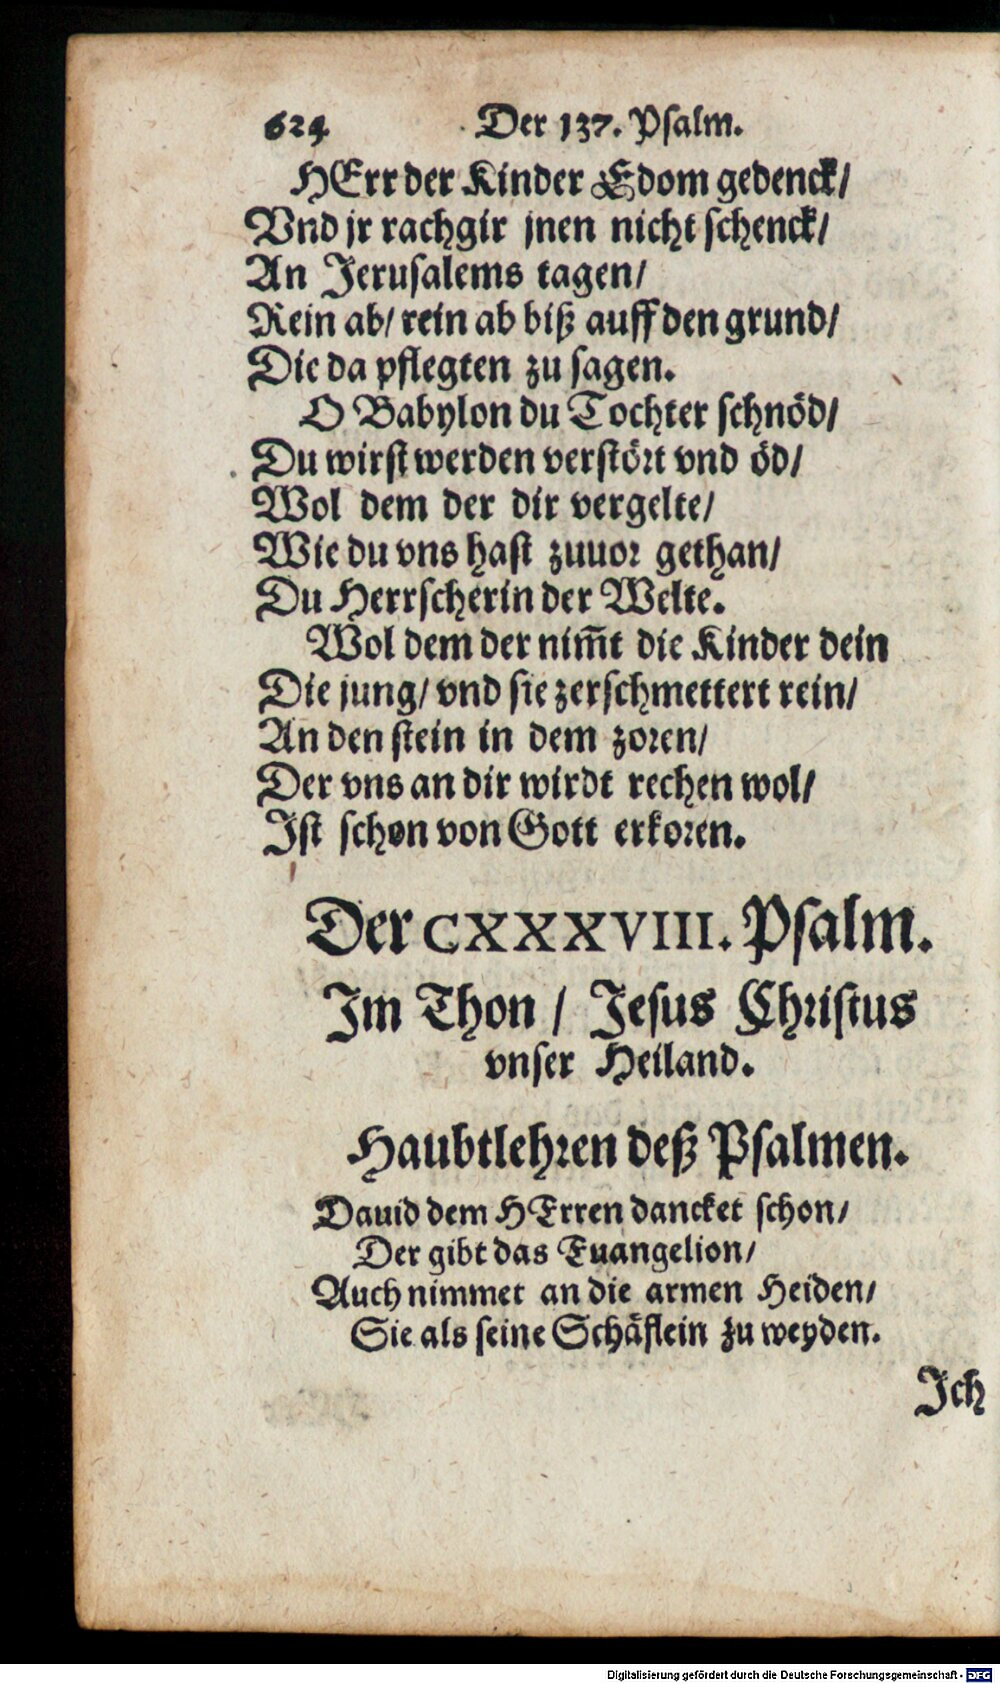 624 Der 137. Psalm.
HErr der Kinder Edom gedenck/
Vnd jr rachgir jnen nicht schenck/
An Jerusalems tagen/
Rein ab/ rein ab biß auff den grund/
Die da pflegten zu sagen.
O Babylon du Tochter schnöd/
Du wirst werden verstört vnd öd/
Wol dem der dir vergelte/
Wie du vns hast zuuor gethan/
Du Herrscherin der Welte.
Wol dem der nim̄t die Kinder dein
Die jung/ vnd sie zerschmettert rein/
An den stein in dem zoren/
Der vns an dir wirdt rechen wol/
Ist schon von Gott erkoren.
Der CXXXVIII. Psalm.
Im Thon / Jesus Christus
vnser Heiland.
Haubtlehren deß Psalmen.
Dauid dem HErren dancket schon/
Der gibt das Euangelion/
Auch nimmet an die armen Heiden/
Sie als seine Schäflein zu weyden.
Ich
Digitalisierung gefördert durch die Deutsche Forschungsgemeinschaft - DFG